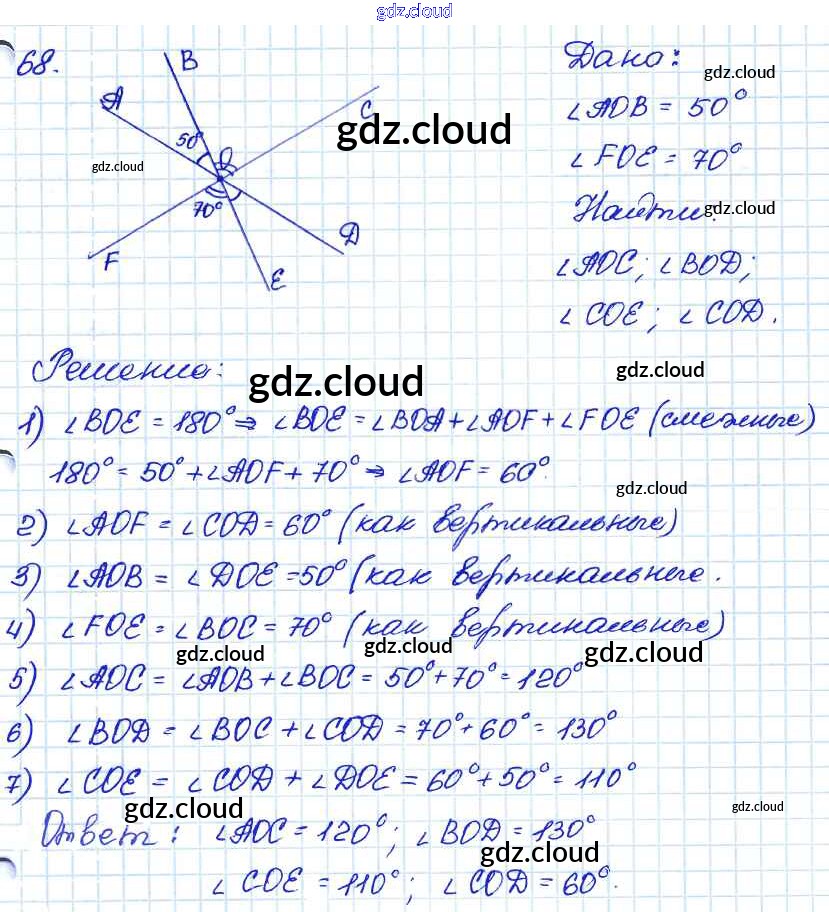 gdz.cloud
68.
B
Дано:
gdz.cloud
A
C
∠AOB = 50°
50°
O
gdz.cloud
gdz.cloud
∠FOE = 70°
70°
Найти:
gdz.cloud
D
F
E
∠AOC; ∠BOD;
∠COE; ∠COD.
Решение:
gdz.cloud
gdz.cloud
1) ∠BOE = 180° ⇒ ∠BOE = ∠BOA + ∠AOF + ∠FOE (смежные)
180° = 50° + ∠AOF + 70° ⇒ ∠AOF = 60°.
gdz.cloud
2) ∠AOF = ∠COD = 60° (как вертикальные)
3) ∠AOB = ∠DOE = 50° (как вертикальные.
4) ∠FOE = ∠BOC = 70° (как вертикальные)
gdz.cloud
gdz.cloud
gdz.cloud
5) ∠AOC = ∠AOB + ∠BOC = 50° + 70° = 120°
6) ∠BOD = ∠BOC + ∠COD = 70° + 60° = 130°
7) ∠COE = ∠COD + ∠DOE = 60° + 50° = 110°
gdz.cloud
gdz.cloud
Ответ: ∠AOC = 120°; ∠BOD = 130°
gdz.cloud
∠COE = 110°; ∠COD = 60°.
gdz.cloud